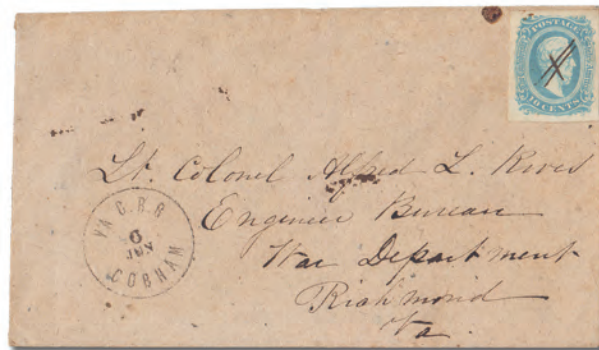 POSTAGE
10 CENTS
Lt. Colonel Alfred L. Rives
Engineer Bureau
War Department
Richmond
Va.
VA C.R.R
JAN
COBHAM